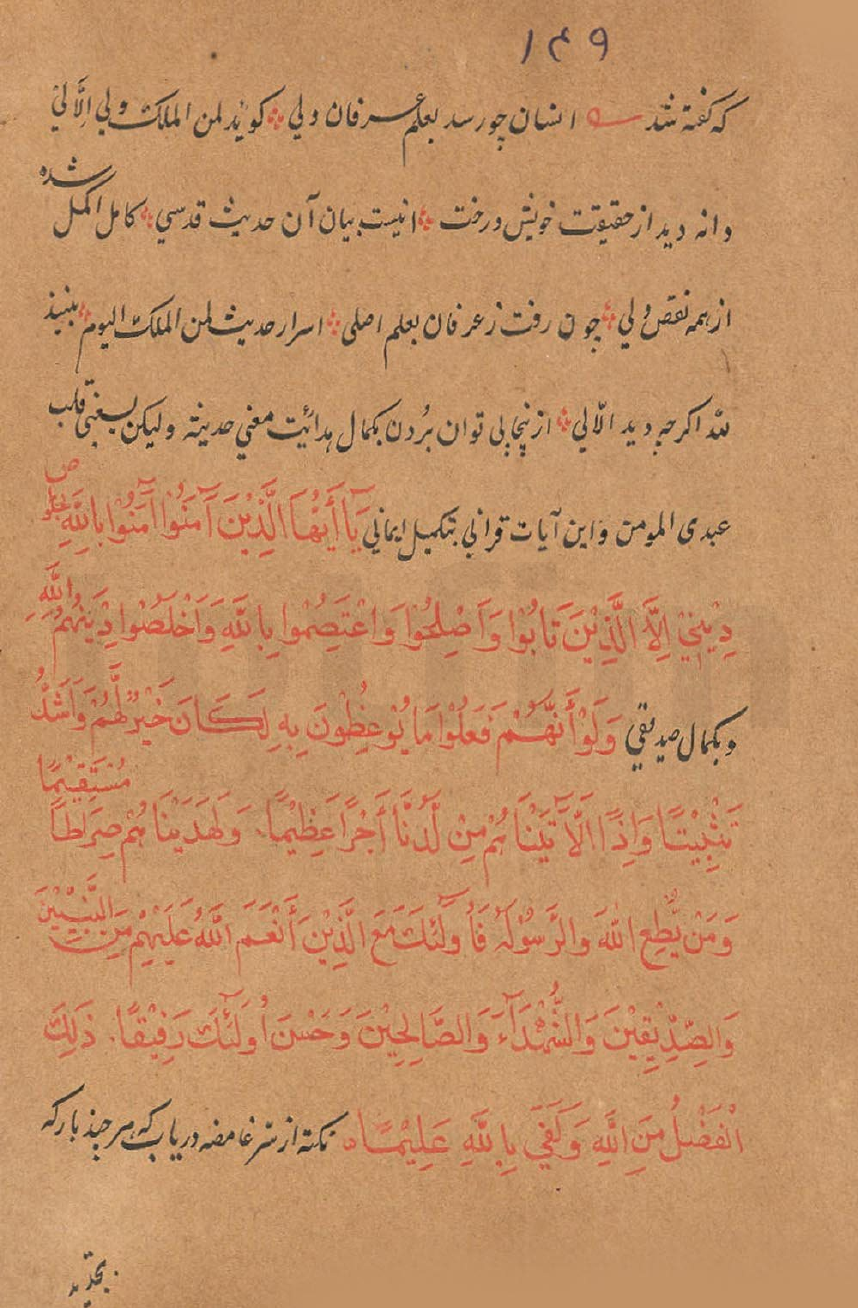 ۱۴۹
که گفته شد انسان چو رسد بعلم عرفان ولی ؞ کوید لمن الملک ولی الّا لی
دانه دید از حقیقت خویش درخت ؞ انیست بیان آن حدیث قدسی ؞ کامل اکمل شده
از همه نقص ولی ؞ چون رفت ز عرفان بعلم اصلی ؞ اسرار حدیث لمن الملک الیوم ؞ ببیند
لله اکرچه دید الّا لی ؞ از نیجا پی توان بردن بکمال هدائیت معنی حدیثه ولیکن یسغنی قلب
عبدی المومن و این آیات قرانی بتکمیل ایمانی یَآ أَیُّهَا الَّذِیْنَ آمَنُوا آمَنُوْا بِاللّٰهِ
دِیْنِیْ اِلَّا الَّذِیْنَ تَابُوْا وَاَصْلِحُوْا وَاعْتَصِمُوا بِاللّٰهِ وَاَخْلَصُوا دِیْنَهُمْ لِلّٰهِ
و بکمال صدیقی وَلَوْ أَنَّهُمْ فَعَلُوْا مَا یُوْعَظُوْنَ بِهِ لَکَانَ خَیْرٌ لَّهُمْ وَاَشَدُّ
تَثْبِیْتًا وَاِذًا الَّآتَیْنَاهُمْ مِنْ لَّدُنَّا أَجْرًا عَظِیْمًا. وَلَهَدَیْنَاهُمْ صِرَاطًا مُسْتَقِیْمًا
وَمَنْ یُّطِعِ اللّٰهَ وَالرَّسُوْلَهُ فَاُولٰئِکَ مَعَ الَّذِیْنَ أَنْعَمَ اللّٰهُ عَلَیْهِمْ مِنَ النَّبِیِّیْنَ
وَالصِّدِّیْقِیْنَ وَالشُّهْدَآءَ وَالصَّالِحِیْنَ وَحَسُنَ اُولٰئِکَ رَفِیْقًا. ذَلِکَ
الْفَضْلُ مِنَ اللّٰهِ وَکَفَیٰ بِاللّٰهِ عَلِیْمًا ه نکته از سّر غامضه دریاب که هر چند بار که